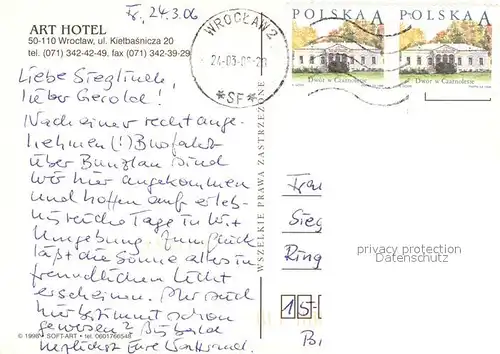 Fr, 24.3.06
ART HOTEL
50-110 Wrocław, ul. Kiełbaśnicza 20
tel. (071) 342-42-49, fax (071) 342-39-29
WROCŁAW 2
24-03-06-20
*SF*
POLSKA A
Dwór w Czarnolesie
POLSKA A
Dwór w Czarnolesie
Liebe Sieglinde,
lieber Gerold!
Nach einer recht ange-
nehmen (!) Busfahrt
über Bunzlau sind
wir hier angekommen
und hoffen auf erleb-
nisreiche Tage in W. +
Umgebung. Zum Glück
läßt die Sonne alles in
freundlichen Licht
erscheinen. Ihr seid
hier bestimmt schon
gewesen? Bis bald
herzlichst Eure
© 1998 SOFT-ART tel. 0601766548
WSZELKIE PRAWA ZASTRZEŻONE
Frau
Sieg
Ring
15
privacy protection
Datenschutz